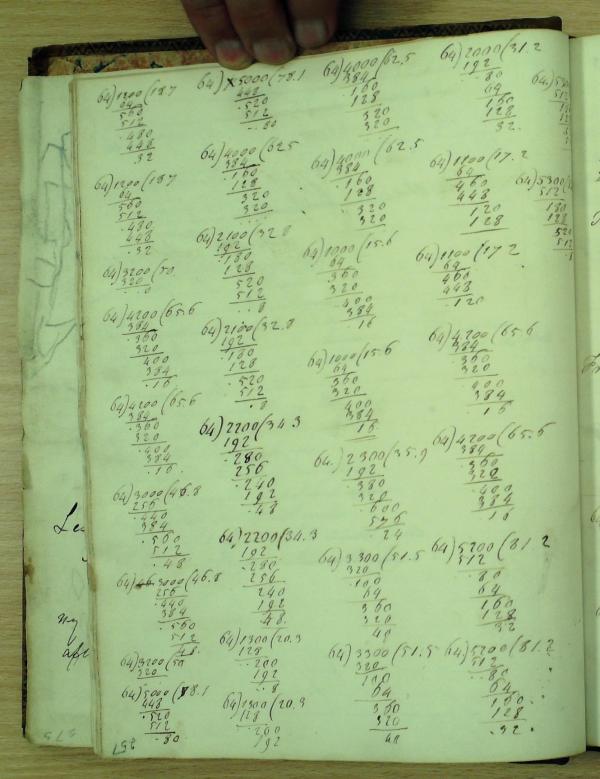 64)1200(187
64
560
512
.480
448
32
64)1200(187
64
560
512
.480
448
.32
64)3200(50
320
..0
64)4200(65.6
384
.360
320
.400
384
.16
64)4200(65.6
384
.360
320
.400
384
.16.
64)3000(46.8
256
.440
384
.560
512
.48
64)3000(46.8
256
.440
384
.560
512
48.
64)3200(50
320
64)5000(78.1
448
.520
512
..80
64)5000(78.1
448
.520
512
..80
64)4000(625
384
.160
128
320
320
64)2100(32.8
192
180
128
520
512
..8
64)2100(32.8
192
180
128
.520
512
.8
64)2200(34.3
192
.280
256
.240
192
.48
64)2200(34.3
192
.280
256
240
192
48.
64)1300(20.3
128
..200
192
..8
64)1300(20.3
128
..200
192
64)4000(62.5
384
.160
128
320
320
64)4000(62.5
384
.160
128
.320
320
64)1000(15.6
64
360
320
.400
384
16
64)1000(15.6
64
360
320
400
384
16
64.)2300(35.9
192
380
320
.600
576
.24
64)3300(51.5
320
.100
64
360
320
40
64)3300(51.5
320
100
64
360
320
40
64)2000(31.2
192
.80
64
160
128
32.
64)1100(17.2
64
460
448
120
128
64)1100(17.2
64
460
448
.120
64)4200(65.6
384
360
320
.400
384
.16
64)4200(65.6
384
.360
320
.400
384
16
64)5200(81.2
512
.80
64
160
128
32
64)5200(81.2
512
.80
64
160
128
.32.
64)5300
512
128
520
512
257